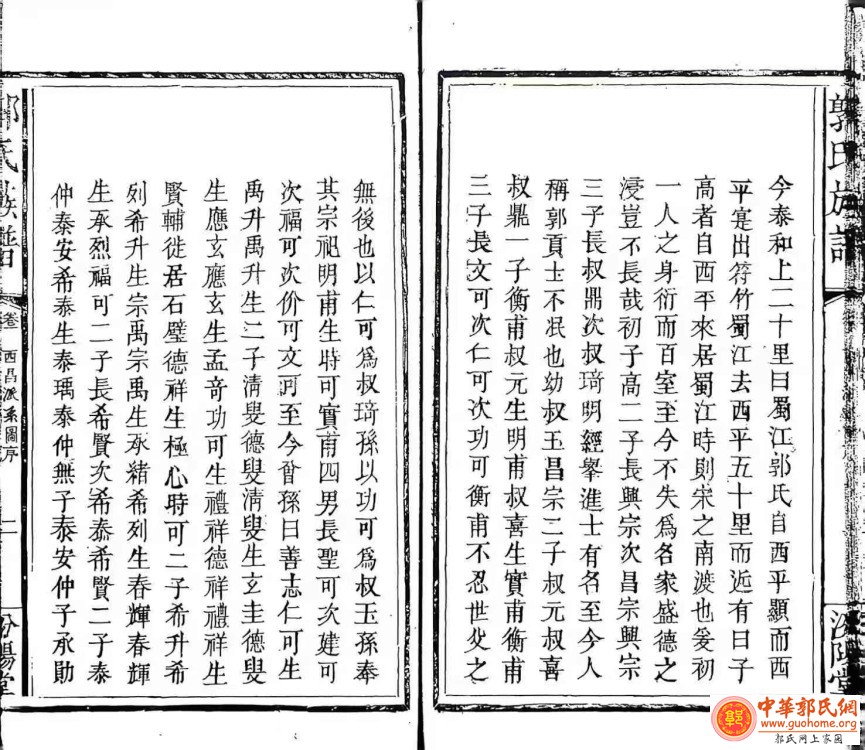 郭氏族譜
汾陽堂
今泰和上二十里曰蜀江郭氏自西平顯而西
平寔出符竹蜀江去西平五十里而近有曰子
高者自西平來居蜀江時則宋之南渡也爰初
一人之身衍而百室至今不失爲名家盛德之
浸豈不長哉初子高二子長興宗次昌宗興宗
三子長叔鼎次叔琦明經舉進士有名至今人
稱郭貢士不泯也幼叔玉昌宗二子叔元叔喜
叔鼎一子衡甫叔元生明甫叔喜生實甫衡甫
三子長文可次仁可次功可衡甫不忍世父之
無後也以仁可爲叔琦孫以功可爲叔玉孫奉
其宗祀明甫生時可實甫四男長聖可次建可
次福可次价可文可至今曾孫曰善志仁可生
禹升禹升生二子清叟德叟清叟生玄圭德叟
生應玄應玄生孟奇功可生禮祥德祥禮祥生
賢輔徙居石壁德祥生極心時可二子希升希
列希升生宗禹宗禹生承緒希列生春輝春輝
生承烈福可二子長希賢次希泰希賢二子泰
仲泰安希泰生泰瑀泰仲無子泰安仲子承勛
郭氏族譜
卷
西昌派系圖序
二
汾陽堂
中華郭氏網
www.guohome.org
郭氏网上家园